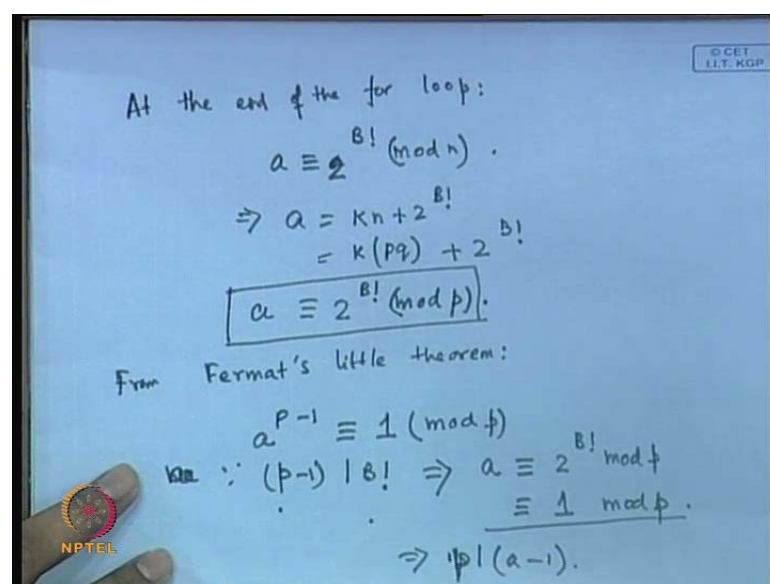 © CET
I.I.T. KGP
At the end of the for loop:
a ≡ 2^{B!} (mod n).
⇒ a = Kn + 2^{B!}
= K(pq) + 2^{B!}
a ≡ 2^{B!} (mod p).
From Fermat's little theorem:
a^{p-1} ≡ 1 (mod p)
∵ (p-1) | B! ⇒ a ≡ 2^{B!} mod p
≡ 1 mod p.
⇒ p|(a-1).
NPTEL